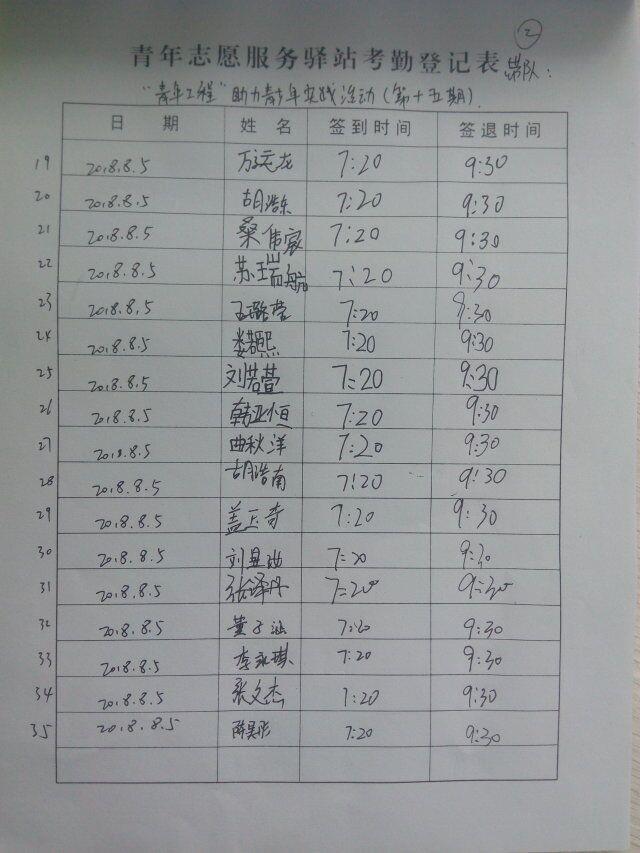 ②
青年志愿服务驿站考勤登记表 带队:
"青年工程"助力青少年实践活动(第十五期)
日 期 姓 名 签到时间 签退时间
19 2018.8.5 万运龙 7:20 9:30
20 2018.8.5 胡浩东 7:20 9:30
21 2018.8.5 桑伟宸 7:20 9:30
22 2018.8.5 苏瑞航 7:20 9:30
23 2018.8.5 7:20 9:30
24 2018.8.5 7:20 9:30
25 2018.8.5 刘若萱 7:20 9:30
26 2018.8.5 韩亚恒 7:20 9:30
27 2018.8.5 曲秋洋 7:20 9:30
28 2018.8.5 胡浩南 7:20 9:30
29 2018.8.5 盖玉奇 7:20 9:30
30 2018.8.5 刘显 7:20 9:30
31 2018.8.5 张泽丹 7:20 9:30
32 2018.8.5 董子涵 7:20 9:30
33 2018.8.5 李永琪 7:20 9:30
34 2018.8.5 张文杰 7:20 9:30
35 2018.8.5 薛昊彤 7:20 9:30